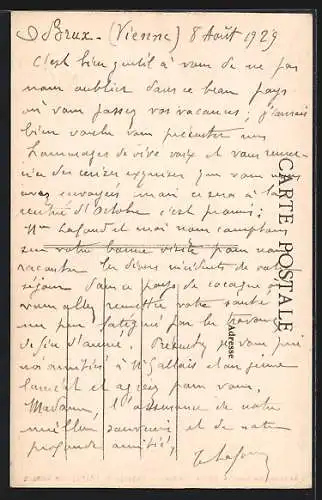 Brux - (Vienne) 8 Août 1929
C'est bien gentil à vous de ne pas
nous oublier dans ce beau pays
où vous passez vos vacances, j'aurais
bien voulu vous présenter mes
hommages de vive voix et vous remer-
cier des cerises exquises que vous nous
avez envoyées mais ce sera à la
rentrée d'Octobre c'est promis;
Mme Lafond et moi nous comptons
sur votre bonne visite pour nous
raconter les divers incidents de votre
séjour dans ce pays de cocagne où
vous allez remettre votre santé
un peu fatiguée par les travaux
de fin d'année. Présentez je vous prie
nos amitiés à Mr Gallois et au jeune
lauréat et agréez pour vous,
Madame, l'assurance de notre
meilleur souvenir et de notre
profonde amitié,
CARTE POSTALE
Adresse